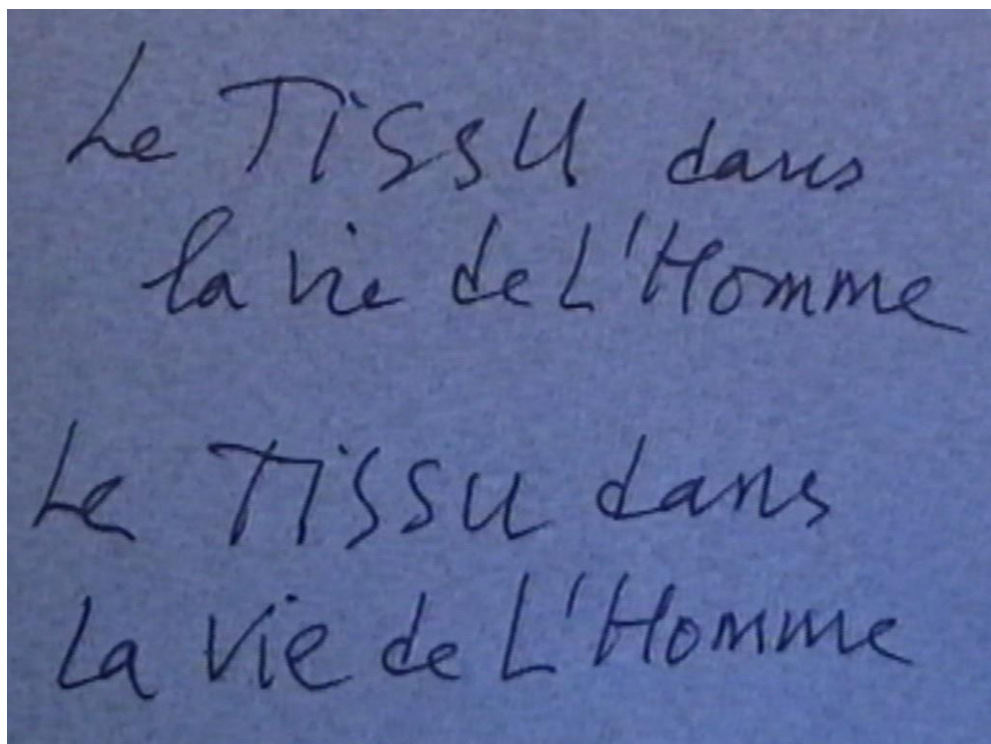 Le TiSSU dans
la vie de L'Homme
Le TiSSU dans
La Vie de L'Homme